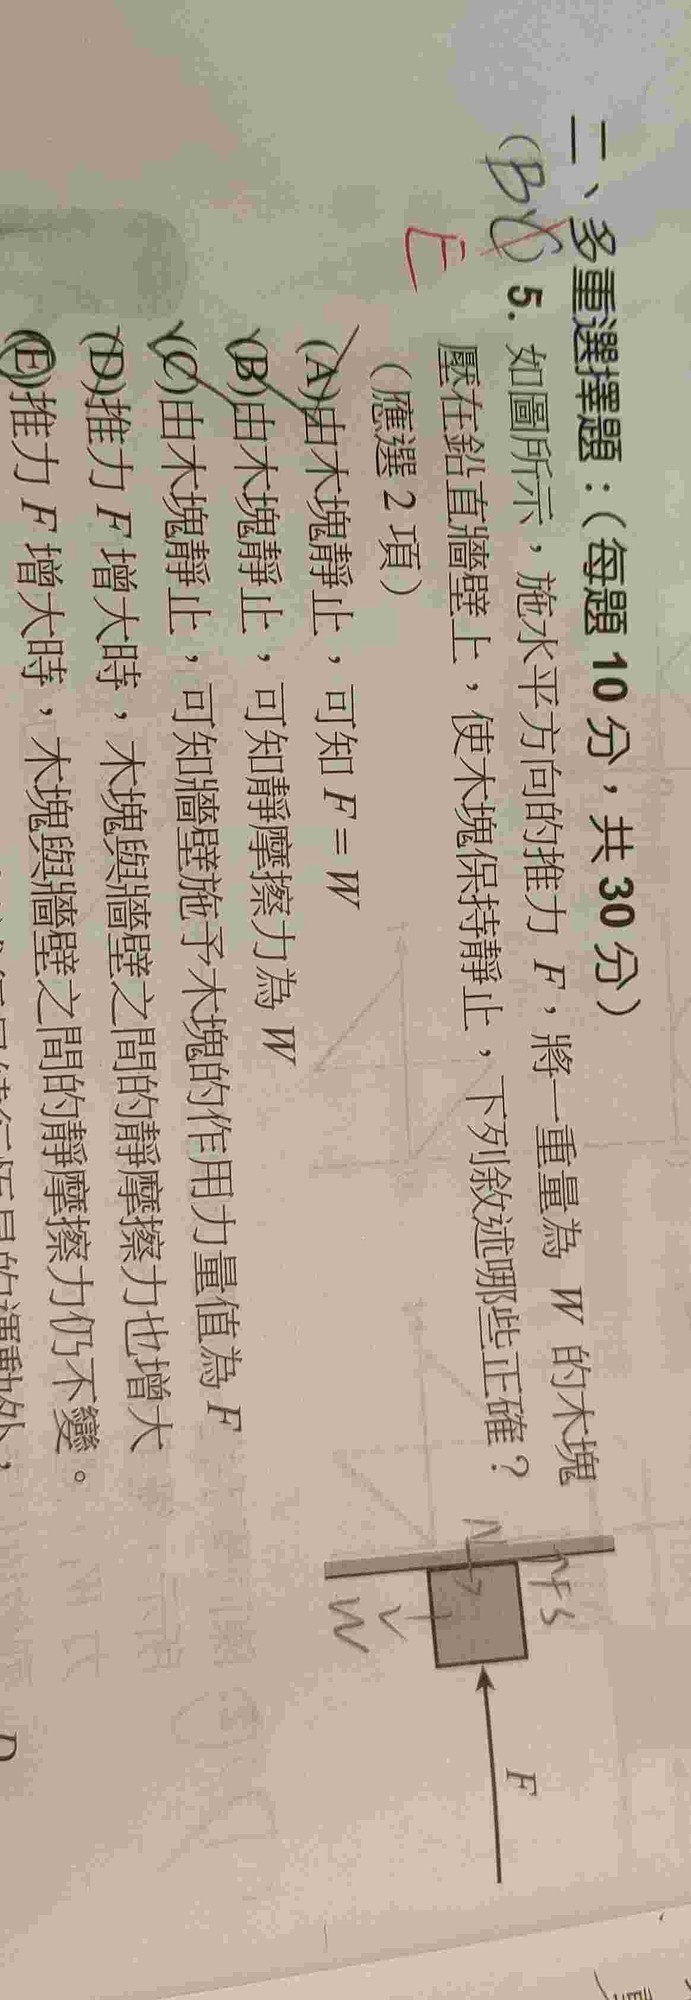 二、多重選擇題：(每題 10 分，共 30 分)
(BC) 5. 如圖所示，施水平方向的推力 F，將一重量為 W 的木塊
E
壓在鉛直牆壁上，使木塊保持靜止，下列敘述哪些正確？
(應選 2 項)
(A)由木塊靜止，可知 F = W
(B)由木塊靜止，可知靜摩擦力為 W
(C)由木塊靜止，可知牆壁施予木塊的作用力量值為 F
(D)推力 F 增大時，木塊與牆壁之間的靜摩擦力也增大
(E)推力 F 增大時，木塊與牆壁之間的靜摩擦力仍不變。
fs
N
W
F